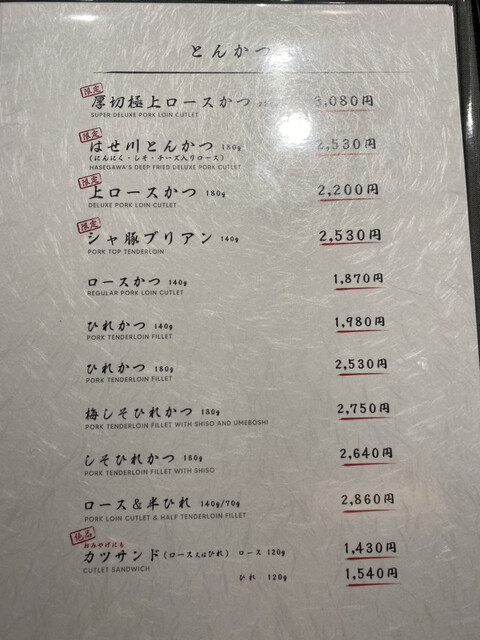 とんかつ
限定
厚切極上ロースかつ 3,080円
SUPER DELUXE PORK LOIN CUTLET
限定
はせ川とんかつ 180g 2,530円
(にんにく・しそ・チーズ入りロース)
HASEGAWA'S DEEP FRIED DELUXE PORK CUTLET
限定
上ロースかつ 180g 2,200円
DELUXE PORK LOIN CUTLET
限定
シャ豚ブリアン 140g 2,530円
PORK TOP TENDERLOIN
ロースかつ 140g 1,870円
REGULAR PORK LOIN CUTLET
ひれかつ 140g 1,980円
PORK TENDERLOIN FILLET
ひれかつ 180g 2,530円
PORK TENDERLOIN FILLET
梅しそひれかつ 180g 2,750円
PORK TENDERLOIN FILLET WITH SHISO AND UMEBOSHI
しそひれかつ 180g 2,640円
PORK TENDERLOIN FILLET WITH SHISO
ロース&半ひれ 140g/70g 2,860円
PORK LOIN CUTLET & HALF TENDERLOIN FILLET
絶品
おみやげにも
カツサンド(ロース又はひれ) ロース 120g 1,430円
CUTLET SANDWICH
ひれ 120g 1,540円